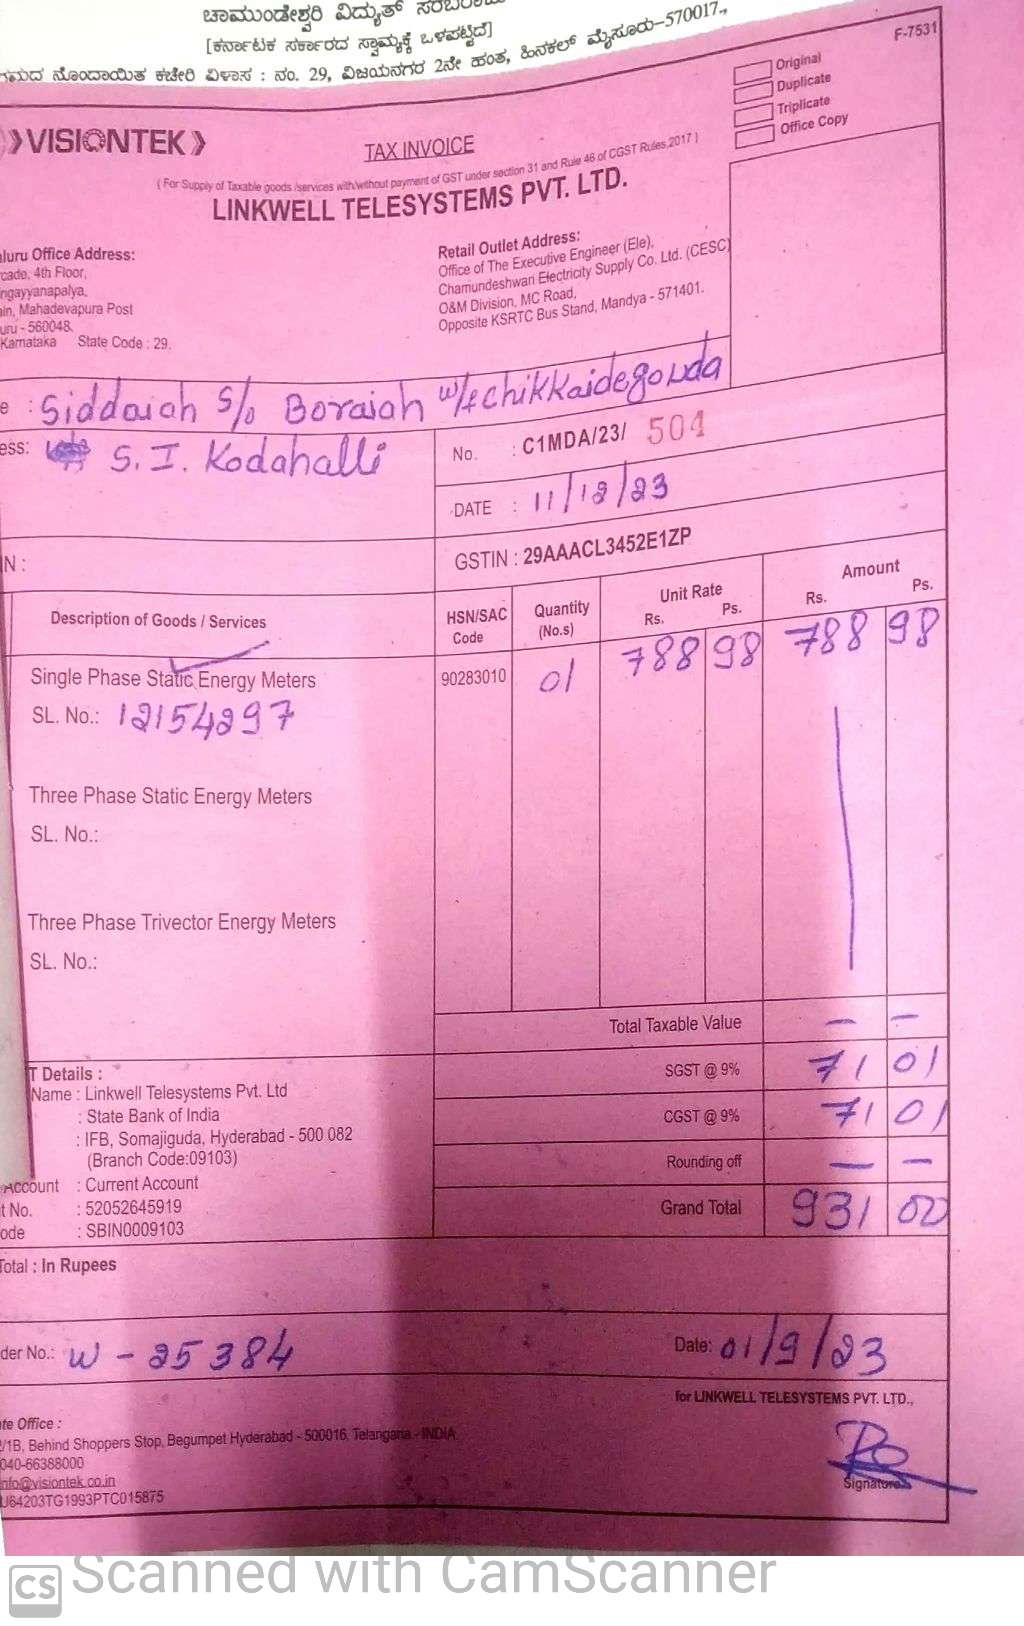 ಚಾಮುಂಡೇಶ್ವರಿ ವಿದ್ಯುತ್ ಸರಬರಾಜು
[ಕರ್ನಾಟಕ ಸರ್ಕಾರದ ಸ್ವಾಮ್ಯಕ್ಕೆ ಒಳಪಟ್ಟಿದೆ]
ನಿಗಮದ ನೊಂದಾಯಿತ ಕಚೇರಿ ವಿಳಾಸ : ನಂ. 29, ವಿಜಯನಗರ 2ನೇ ಹಂತ, ಹಿನಕಲ್ ಮೈಸೂರು–570017.,
F-7531
Original
Duplicate
Triplicate
Office Copy
VISIONTEK
TAX INVOICE
( For Supply of Taxable goods /services with/without payment of GST under section 31 and Rule 46 of CGST Rules,2017 )
LINKWELL TELESYSTEMS PVT. LTD.
luru Office Address:
cade, 4th Floor,
ngayyanapalya,
in, Mahadevapura Post
uru - 560048.
Karnataka State Code : 29.
Retail Outlet Address:
Office of The Executive Engineer (Ele),
Chamundeshwari Electricity Supply Co. Ltd. (CESC)
O&M Division, MC Road,
Opposite KSRTC Bus Stand, Mandya - 571401.
e : Siddaiah S/o Boraiah w/f chikkaidegouda
ess: S. I. Kodahalli
No. : C1MDA/23/ 504
DATE : 11/12/23
N :
GSTIN : 29AAACL3452E1ZP
Description of Goods / Services HSN/SAC Code Quantity (No.s) Unit Rate Rs. Ps. Amount Rs. Ps.
Single Phase Static Energy Meters 90283010 01 788 98 788 98
SL. No.: 12154297
Three Phase Static Energy Meters
SL. No.:
Three Phase Trivector Energy Meters
SL. No.:
Total Taxable Value — —
SGST @ 9% 71 01
CGST @ 9% 71 01
Rounding off — —
Grand Total 931 00
T Details :
Name : Linkwell Telesystems Pvt. Ltd
: State Bank of India
: IFB, Somajiguda, Hyderabad - 500 082
(Branch Code:09103)
Account : Current Account
t No. : 52052645919
ode : SBIN0009103
Total : In Rupees
der No.: W - 25384
Date: 01/9/23
for LINKWELL TELESYSTEMS PVT. LTD.,
te Office :
/1B, Behind Shoppers Stop, Begumpet Hyderabad - 500016, Telangana - INDIA
040-66388000
info@visiontek.co.in
U64203TG1993PTC015875
Signature
CS Scanned with CamScanner